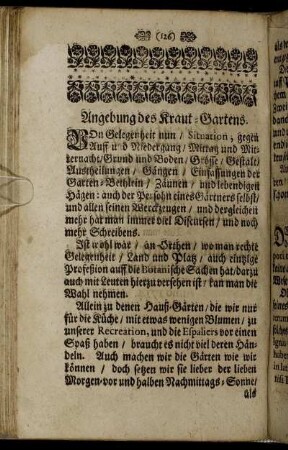 (126)
Angebung des Kraut-Gartens.
VOn Gelegenheit nun / Situation, gegen
Auff und Niedergang / Mittag und Mit-
ternacht / Grund und Boden / Grösse / Gestalt /
Austheilungen / Gängen / Einfassungen der
Garten-Bethlein / Zäunen / und lebendigen
Hägen: auch der Persohn eines Gärtners selbst /
und allen seinen Werckzeugen / und dergleichen
mehr hat man immer viel Discursen / und noch
mehr Schreibens.
Ist wohl war / an Orthen / wo man rechte
Gelegenheit / Land und Platz / auch eintzige
Profession auff die Botanische Sachen hat / darzu
auch mit Leuten hierzu versehen ist / kan man die
Wahl nehmen.
Allein zu denen Hauß-Gärten / die wir nur
für die Küche / mit etwas wenigen Blumen / zu
unserer Recreation, und die Espaliers vor einen
Spaß haben / braucht es nicht viel deren Hän-
deln. Auch machen wir die Gärten wie wir
können / doch setzen wir sie lieber der lieben
Morgen-vor und halben Nachmittags-Sonne /
als